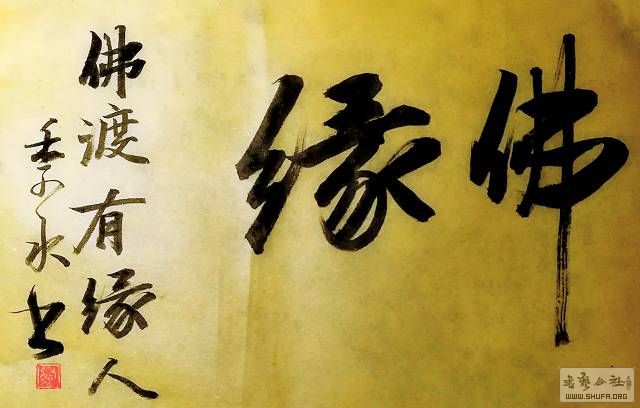 佛缘
佛渡有缘人
壬子水书
书艺公社
WWW.SHUFA.ORG